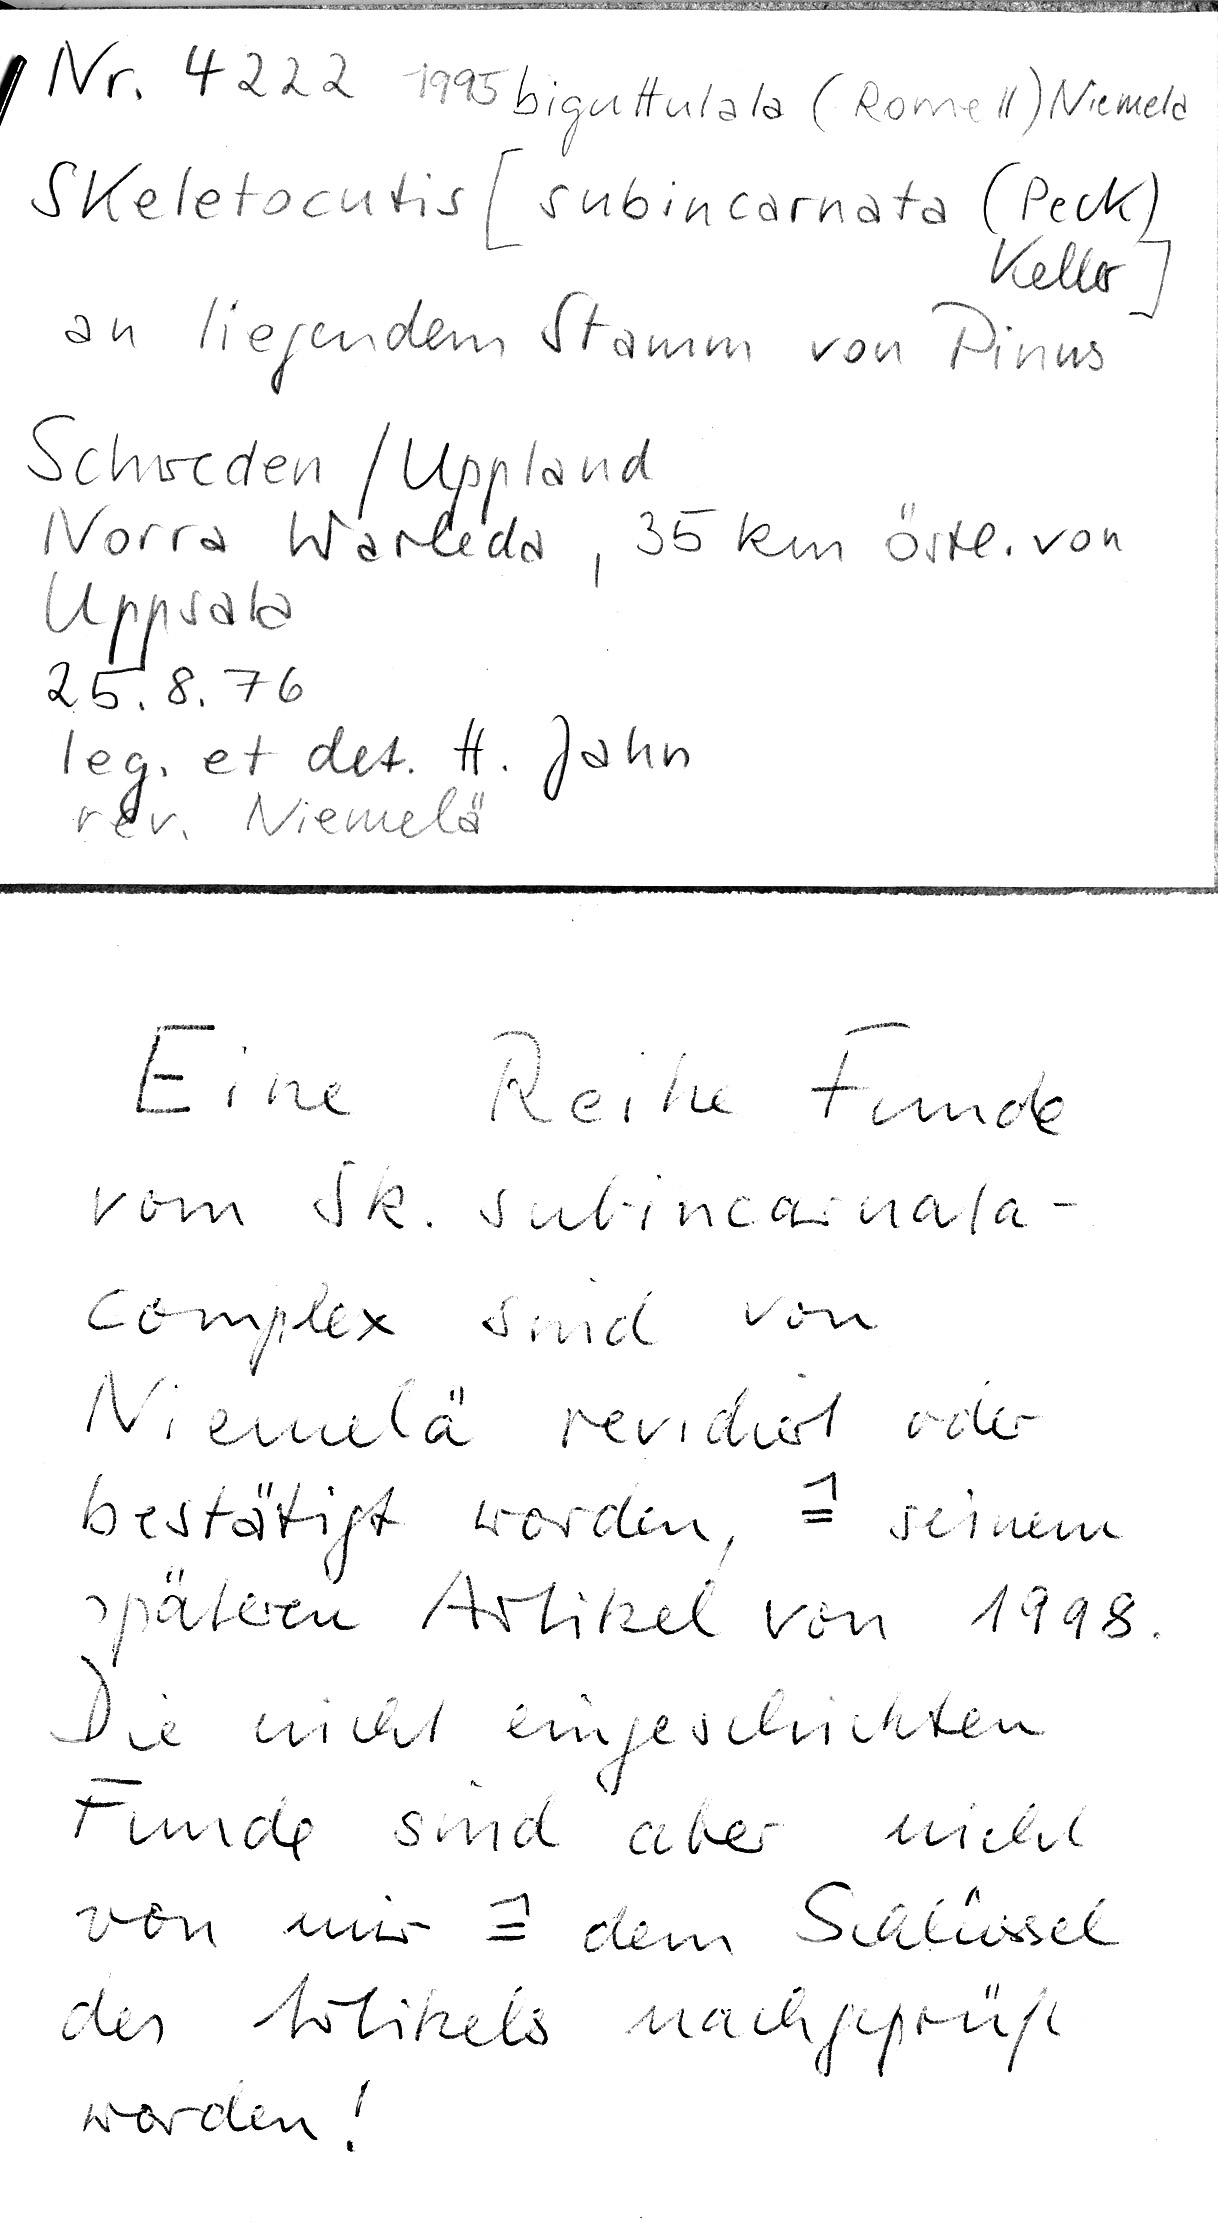 Nr. 4222 1995 biguttulata (Romell) Niemelä
Skeletocutis [subincarnata (Peck)
Keller]
an liegendem Stamm von Pinus
Schweden / Uppland
Norra Warleda, 35 km östl. von
Uppsala
25.8.76
leg. et det. H. Jahn
rev. Niemelä
Eine Reihe Funde
vom Sk. subincarnata-
complex sind von
Niemelä revidiert oder
bestätigt worden, ≙ seinem
späteren Artikel von 1998.
Die nicht eingeschickten
Funde sind aber nicht
von mir ≙ dem Schlüssel
des Artikels nachgeprüft
worden!